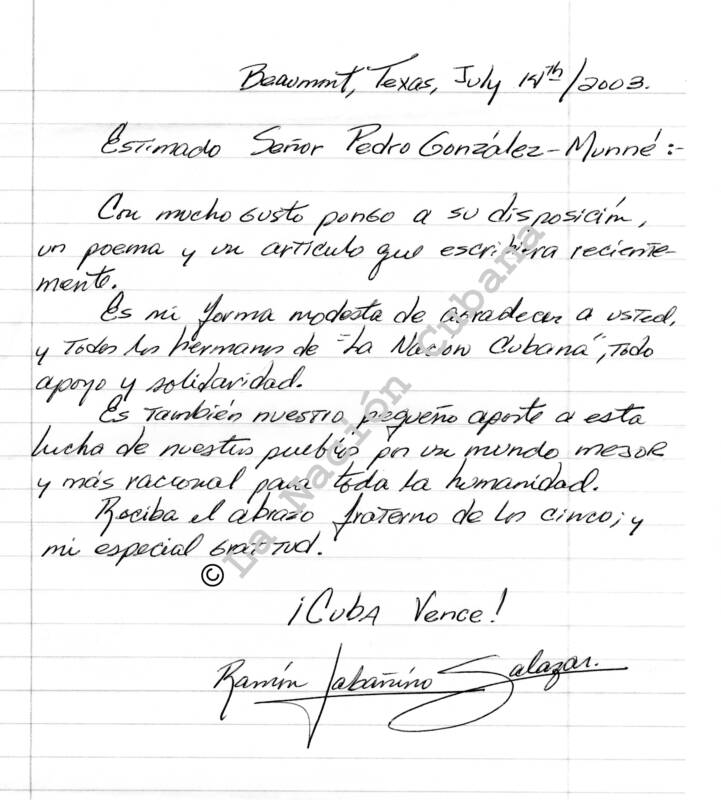 Beaumont, Texas, July 14th/2003.
Estimado Señor Pedro González-Munné:-
Con mucho gusto pongo a su disposición,
un poema y un artículo que escribiera reciente-
mente.
Es mi forma modesta de agradecer a usted,
y todos los hermanos de "La Nación Cubana", todo
apoyo y solidaridad.
Es también nuestro pequeño aporte a esta
lucha de nuestros pueblos por un mundo mejor
y más racional para toda la humanidad.
Reciba el abrazo fraterno de los cinco; y
mi especial gratitud.
¡Cuba Vence!
Ramón Labañino Salazar.
© La Nación Cubana